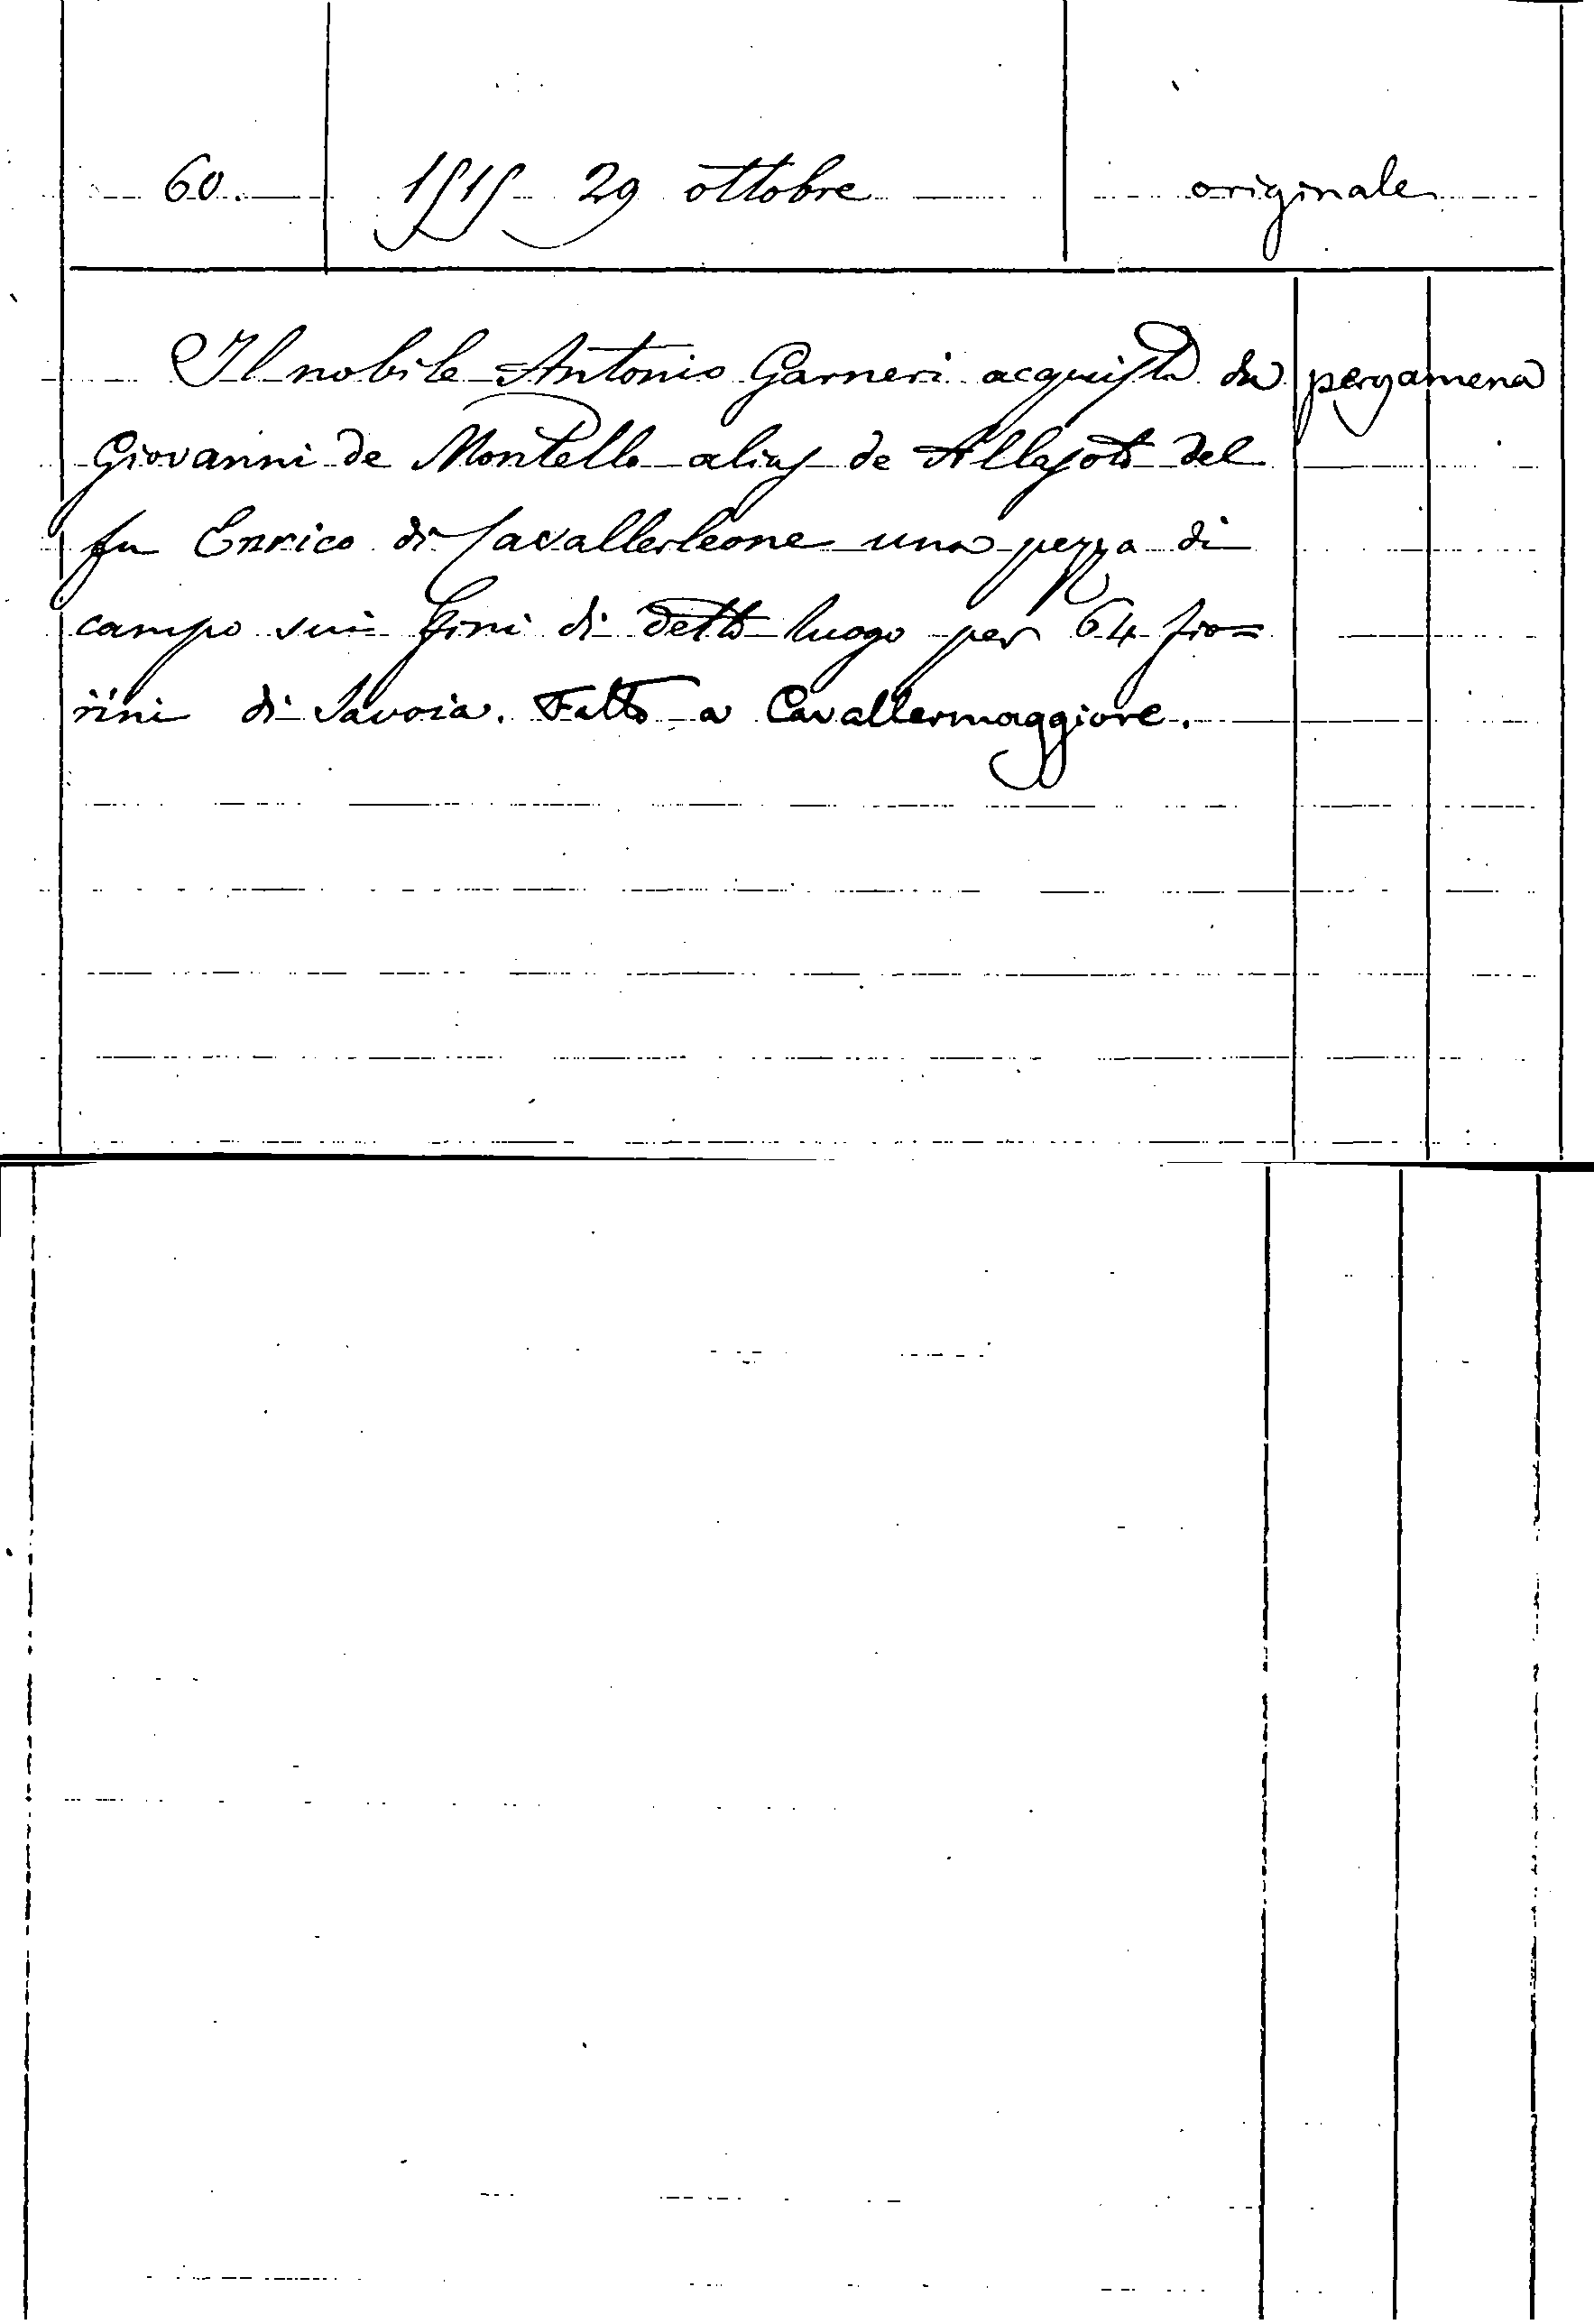 60. 1515 29 ottobre originale
Il nobile Antonio Garneri acquista da pergamena
Giovanni de Montello alias de Allasoto del
fu Enrico di Cavallerleone una pezza di
campo sui fini di detto luogo per 64 fio=
rini di Savoia. Fatto a Cavallermaggiore.